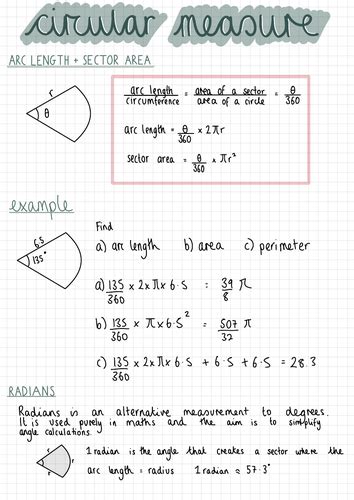 circular measure
ARC LENGTH + SECTOR AREA
r
θ
arc length / circumference = area of a sector / area of a circle = θ / 360
arc length = θ/360 × 2πr
sector area = θ/360 × πr²
example
6.5
135°
Find
a) arc length b) area c) perimeter
a) 135/360 × 2×π×6.5 = 39/8 π
b) 135/360 × π×6.5² = 507/32 π
c) 135/360 × 2×π×6.5 + 6.5 + 6.5 = 28.3
RADIANS
Radians is an alternative measurement to degrees.
It is used purely in maths and the aim is to simplify
angle calculations.
r r
r
1 radian is the angle that creates a sector where the
arc length = radius 1 radian ≈ 57.3°